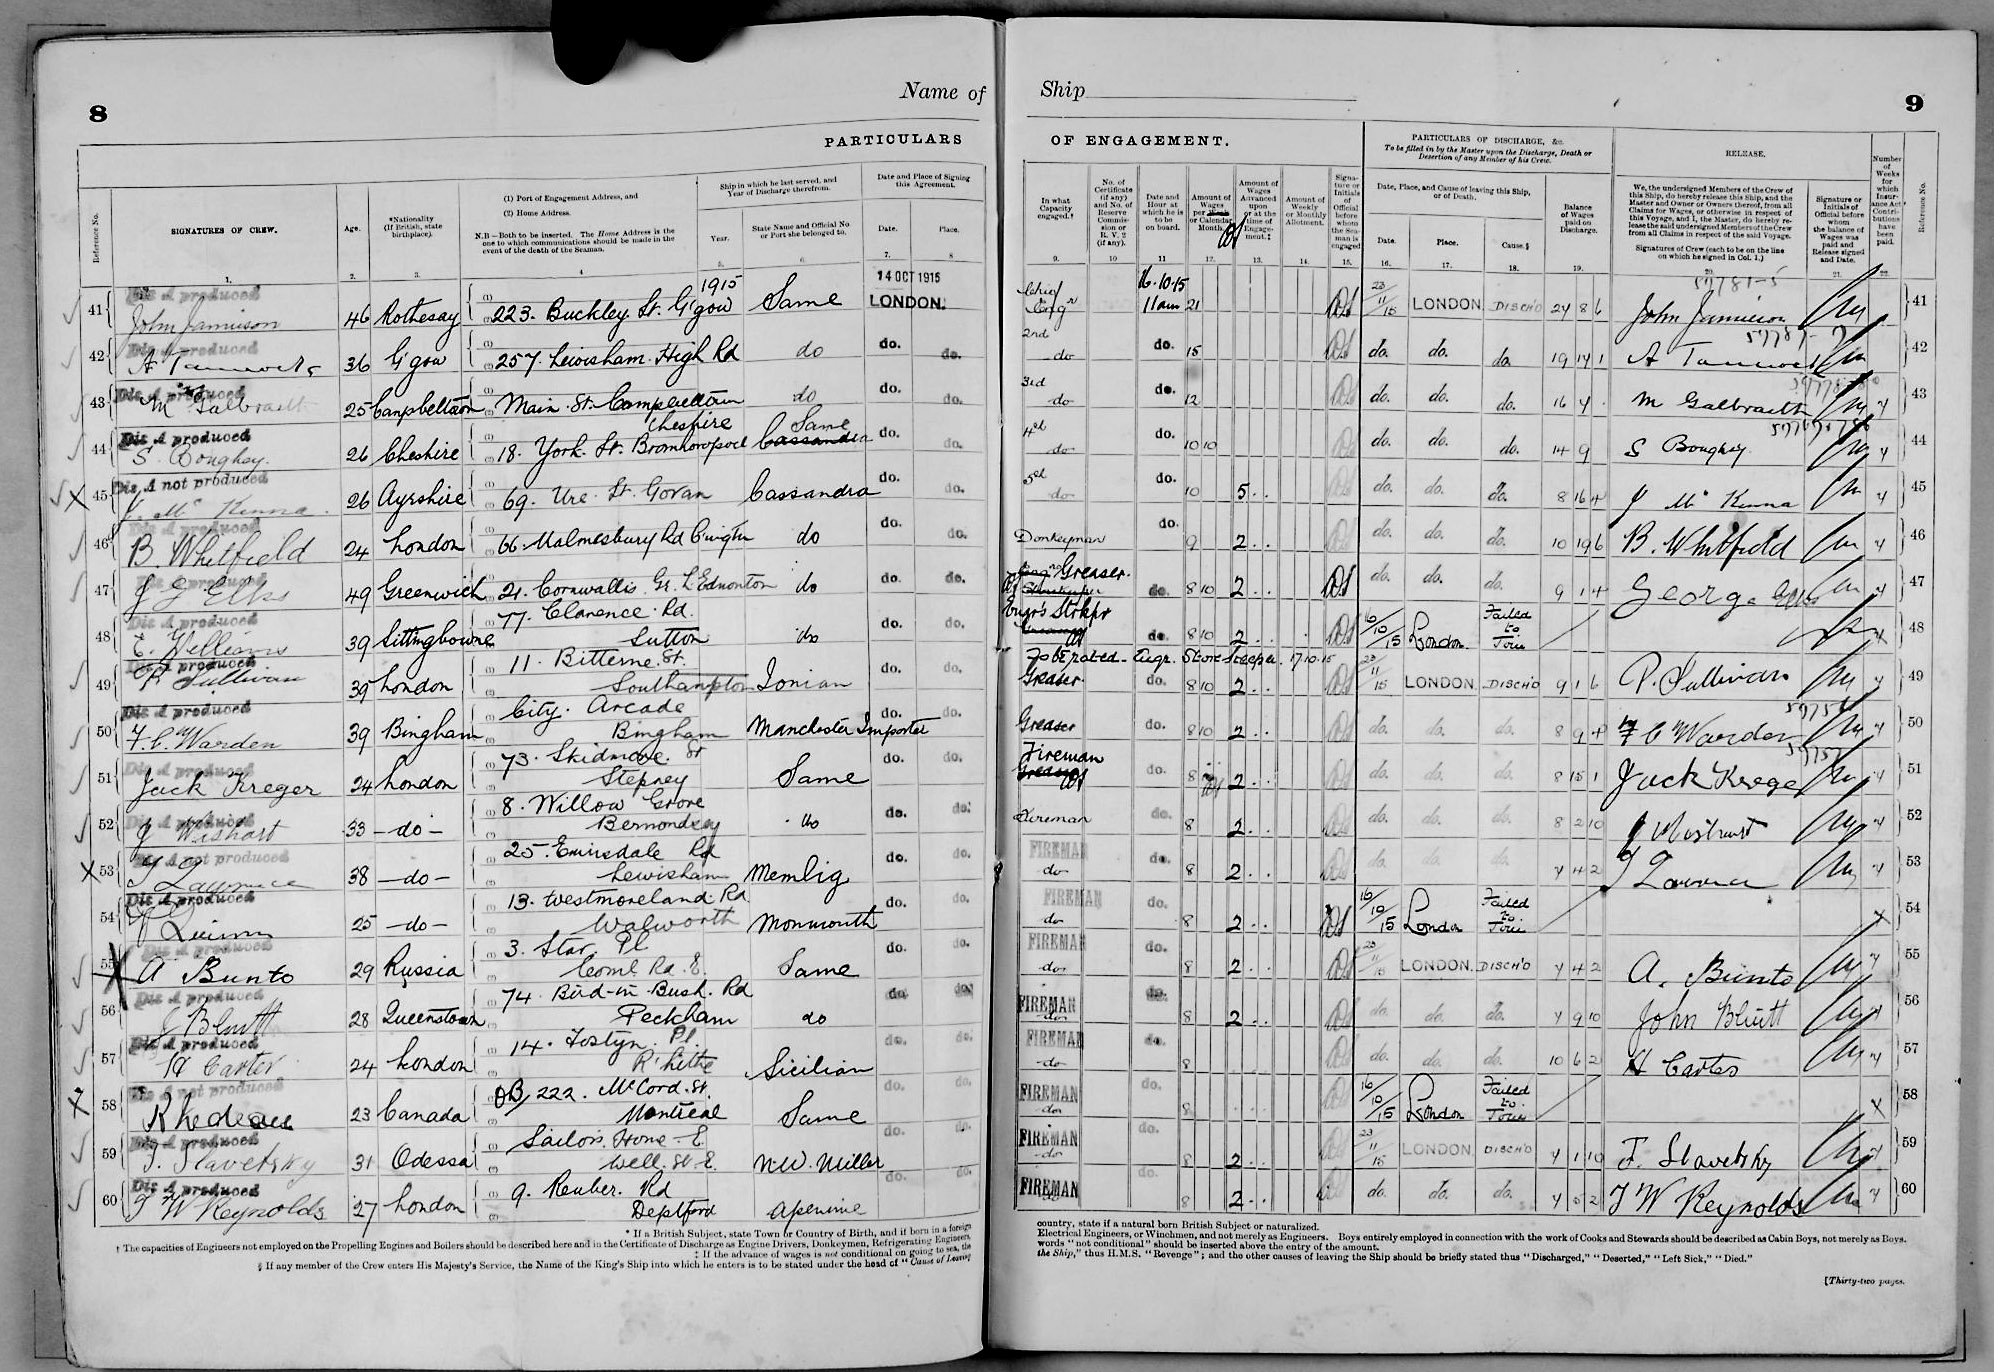 8
Name of
PARTICULARS
Reference No.
SIGNATURES OF CREW.
Age.
*Nationality (If British, state birthplace).
(1) Port of Engagement Address, and
(2) Home Address.
N.B—Both to be inserted. The Home Address is the one to which communications should be made in the event of the death of the Seaman.
Ship in which he last served, and Year of Discharge therefrom.
Year.
State Name and Official No or Port she belonged to.
Date and Place of Signing this Agreement.
Date.
Place.
1. 2. 3. 4 5. 6. 7. 8
41 Dis A produced John Jamieson 46 Rothesay 223. Buckley St. G'gow 1915 Same 14 OCT 1915 LONDON.
42 Dis A produced 36 G'gow 257. Lewisham High Rd do do. do.
43 Dis A produced M Galbraith 25 Campbeltown Main St. Campbeltown do do. do.
44 Dis A produced S. Boughey. 26 Cheshire 18. York. St. Cheshire Same Cassandra do. do.
45 Dis A not produced J. McKenna. 26 Ayrshire 69. Ure. St. Govan Cassandra do. do.
46 Dis A produced B. Whitfield 24 London 66 Malmesbury Rd do do. do.
47 Dis A produced 49 Greenwich 21. Cornwallis. Gr. L. Edmonton do do. do.
48 Dis A produced E. Williams 39 Sittingbourne 77. Clarence. Rd. Sutton do do. do.
49 Dis A produced P. Sullivan 39 London 11. Bitterne. St. Southampton Ionian do. do.
50 Dis A produced F. C. Warden 39 Bingham City. Arcade Bingham Manchester Importer do. do.
51 Dis A produced Jack Kreger 24 London 73. Skidmore. St Stepney Same do. do.
52 Dis A produced J Wishart 33 —do— 8. Willow Grove Bermondsey do do. do.
53 Dis A not produced 38 —do— 25. Rd Lewisham Memlig do. do.
54 Dis A produced 25 —do— 13. Westmoreland Rd Walworth Monmouth do. do.
55 Dis A produced A Bunto 29 Russia 3. Star. Pl Coml Rd. E. Same do. do.
56 Dis A produced J Bluitt 28 Queenstown 74. Bird-in-Bush. Rd Peckham do do. do.
57 Dis A produced H Carter 24 London 14. Pl. R'hithe Sicilian do. do.
58 Dis A not produced 23 Canada 222. McCord. St. Montreal Same do. do.
59 Dis A produced F. Slavetsky 31 Odessa Sailors. Home—E. Well. St. E. N.W. Miller do. do.
60 Dis A produced T W Reynolds 27 London 9. Reuben. Rd Deptford Apenine do. do.
* If a British Subject, state Town or Country of Birth, and if born in a foreign
† The capacities of Engineers not employed on the Propelling Engines and Boilers should be described here and in the Certificate of Discharge as Engine Drivers, Donkeymen, Refrigerating Engineers,
‡ If the advance of wages is not conditional on going to sea, the
§ If any member of the Crew enters His Majesty's Service, the Name of the King's Ship into which he enters is to be stated under the head of "Cause of Leaving
Ship
9
OF ENGAGEMENT.
PARTICULARS OF DISCHARGE, &c.
To be filled in by the Master upon the Discharge, Death or Desertion of any Member of his Crew.
RELEASE.
In what Capacity engaged.†
No. of Certificate (if any) and No. of Reserve Commission or R. V. 2 (if any).
Date and Hour at which he is to be on board.
Amount of Wages per Week or Calendar Month.
Amount of Wages Advanced upon or at the time of Engagement.‡
Amount of Weekly or Monthly Allotment.
Signature or Initials of Official before whom the Seaman is engaged
Date, Place, and Cause of leaving this Ship, or of Death.
Date.
Place.
Cause.§
Balance of Wages paid on Discharge.
We, the undersigned Members of the Crew of this Ship, do hereby release this Ship, and the Master and Owner or Owners thereof, from all Claims for Wages, or otherwise in respect of this Voyage, and I, the Master, do hereby release the said undersigned Members of the Crew from all Claims in respect of the said Voyage.
Signatures of Crew (each to be on the line on which he signed in Col. 1.)
Signature or Initials of Official before whom the balance of Wages was paid and Release signed and Date.
Number of Weeks for which Insurance Act Contributions have been paid.
Reference No.
9. 10 11 12. 13. 14. 15. 16. 17. 18. 19. 20. 21. 22.
Chief Engr 16.10.15 11am 21 23/11/15 LONDON DISCH'D 24 8 6 John Jamieson 41
2nd do do. 15 do. do. do. 19 14 1 42
3rd do do. 12 do. do. do. 16 4 M Galbraith 4 43
4th do do. 10 10 do. do. do. 14 9 S Boughey 4 44
5th do do. 10 5 do. do. do. 8 16 4 J McKenna 4 45
Donkeyman do. 9 2 do. do. do. 10 19 6 B. Whitfield 4 46
Greaser. do. 8 10 2 do. do. do. 9 1 4 George 4 47
Engr's Stokpr do. 8 10 2 16/10/15 London. Failed to Join 48
rated Engr. Store Keeper. 17.10.15
Greaser do. 8 10 2 23/11/15 LONDON DISCH'D 9 1 6 P. Sullivan 4 49
Greaser do. 8 10 2 do. do. do. 8 9 4 F C Warden 4 50
Fireman Greaser do. 8 2 do. do. do. 8 15 1 Jack Kreger 4 51
Fireman do. 8 2 do. do. do. 8 2 10 4 52
FIREMAN do do. 8 2 do. do. do. 4 4 2 4 53
FIREMAN do do. 8 2 16/10/15 London Failed to Join x 54
FIREMAN do do. 8 2 23/11/15 LONDON. DISCH'D 4 4 2 A. Bunto 4 55
FIREMAN do do. 8 2 do. do. do. 4 9 10 John Bluitt 4 56
FIREMAN do do. 8 do. do. do. 10 6 2 H Carter 4 57
FIREMAN do do. 8 16/10/15 London Failed to Join x 58
FIREMAN do do. 8 2 23/11/15 LONDON DISCH'D 4 1 10 F. Slavetsky 4 59
FIREMAN do. 8 2 do. do. do. 4 5 2 T W Reynolds 4 60
country, state if a natural born British Subject or naturalized.
Electrical Engineers, or Winchmen, and not merely as Engineers. Boys entirely employed in connection with the work of Cooks and Stewards should be described as Cabin Boys, not merely as Boys.
words "not conditional" should be inserted above the entry of the amount.
the Ship," thus H.M.S. "Revenge"; and the other causes of leaving the Ship should be briefly stated thus "Discharged," "Deserted," "Left Sick," "Died."
[Thirty-two pages.